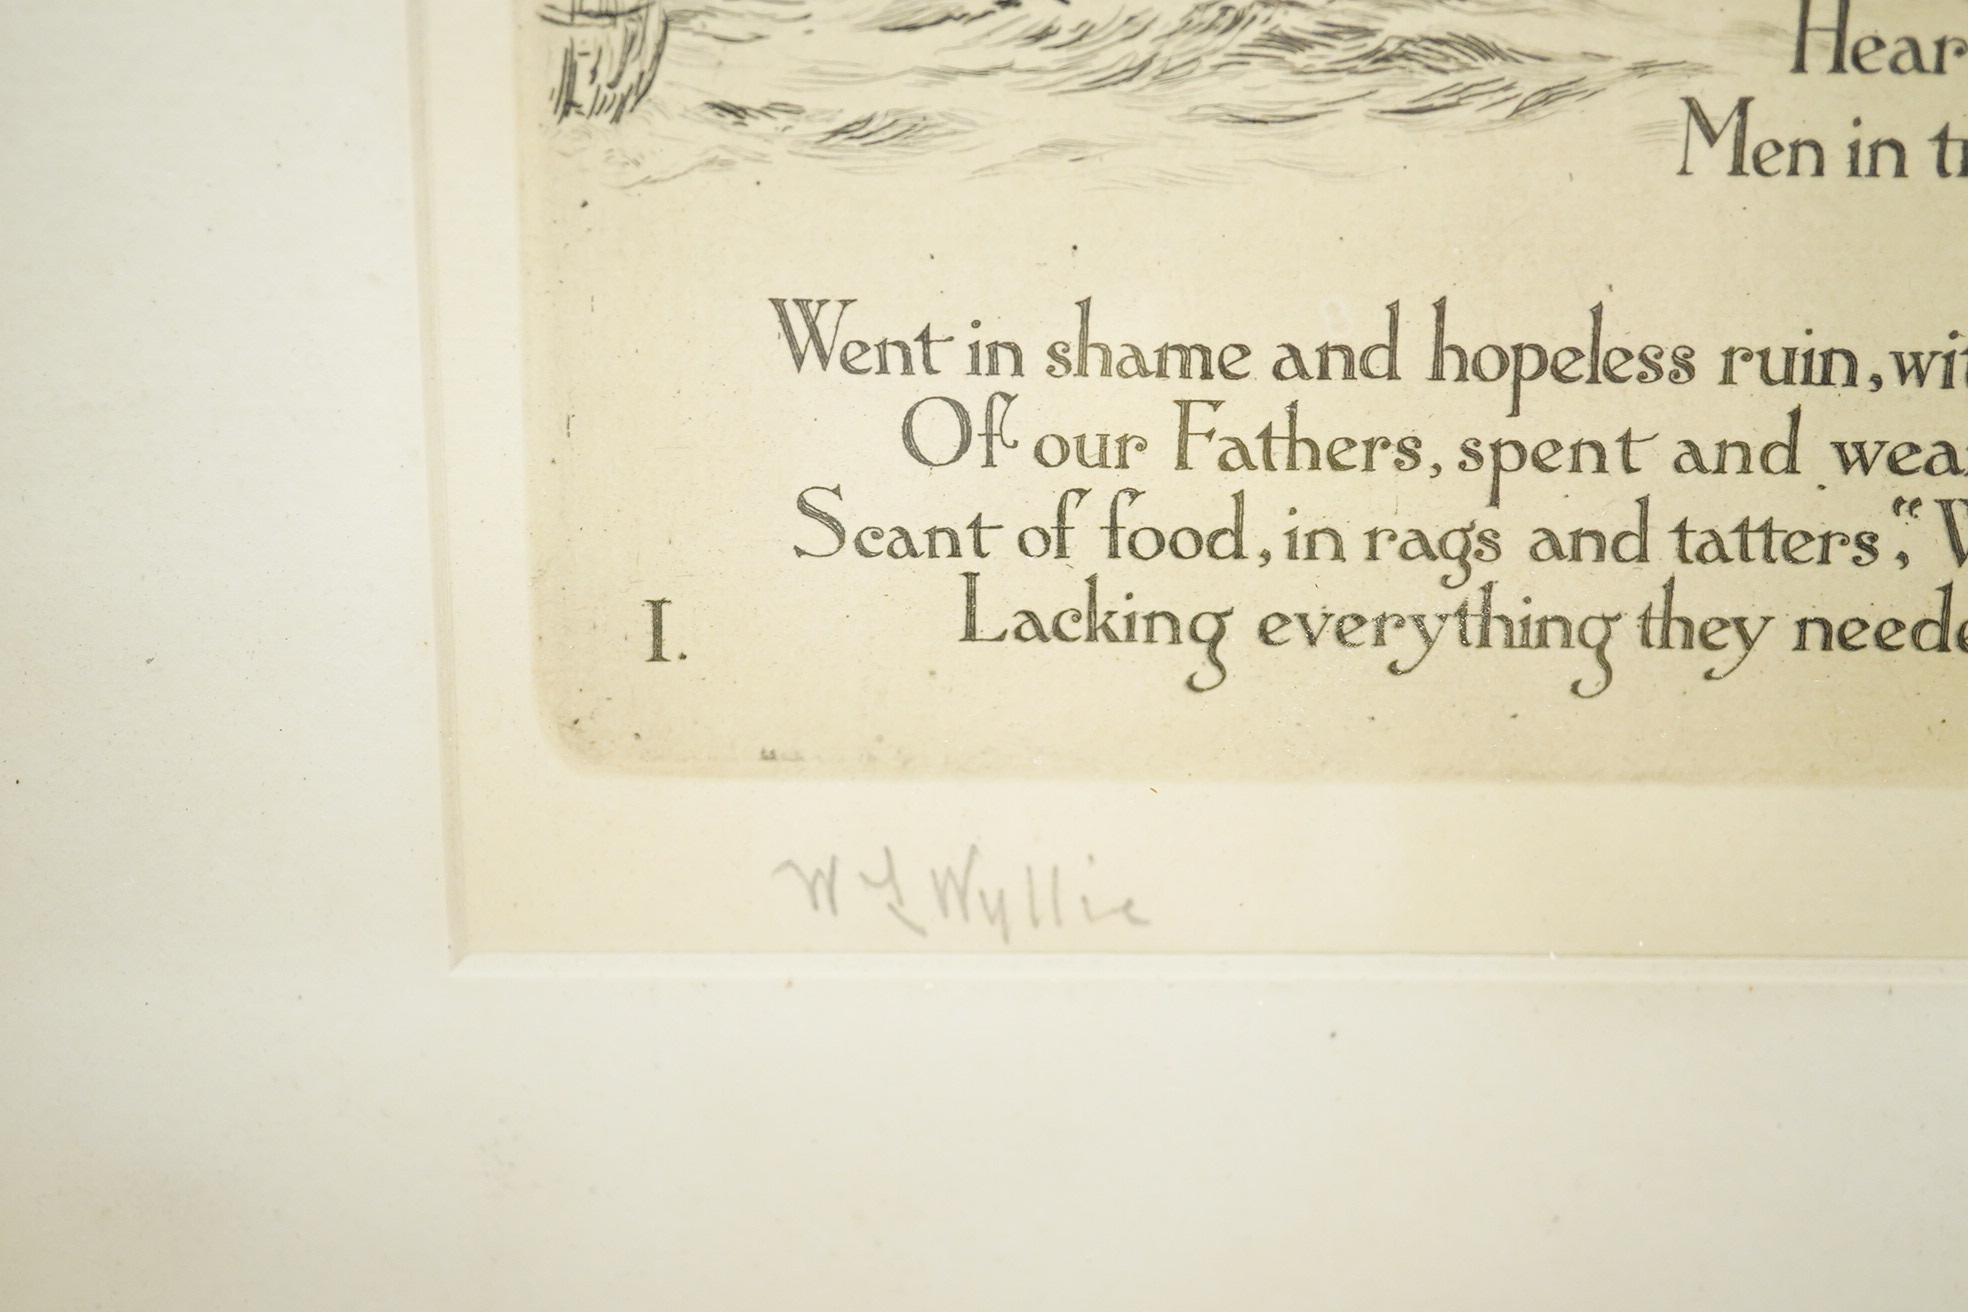 Hear
Men in
Went in shame and hopeless ruin, wit
Of our Fathers, spent and wea
Scant of food, in rags and tatters,“ W
I. Lacking everything they neede
W L Wyllie